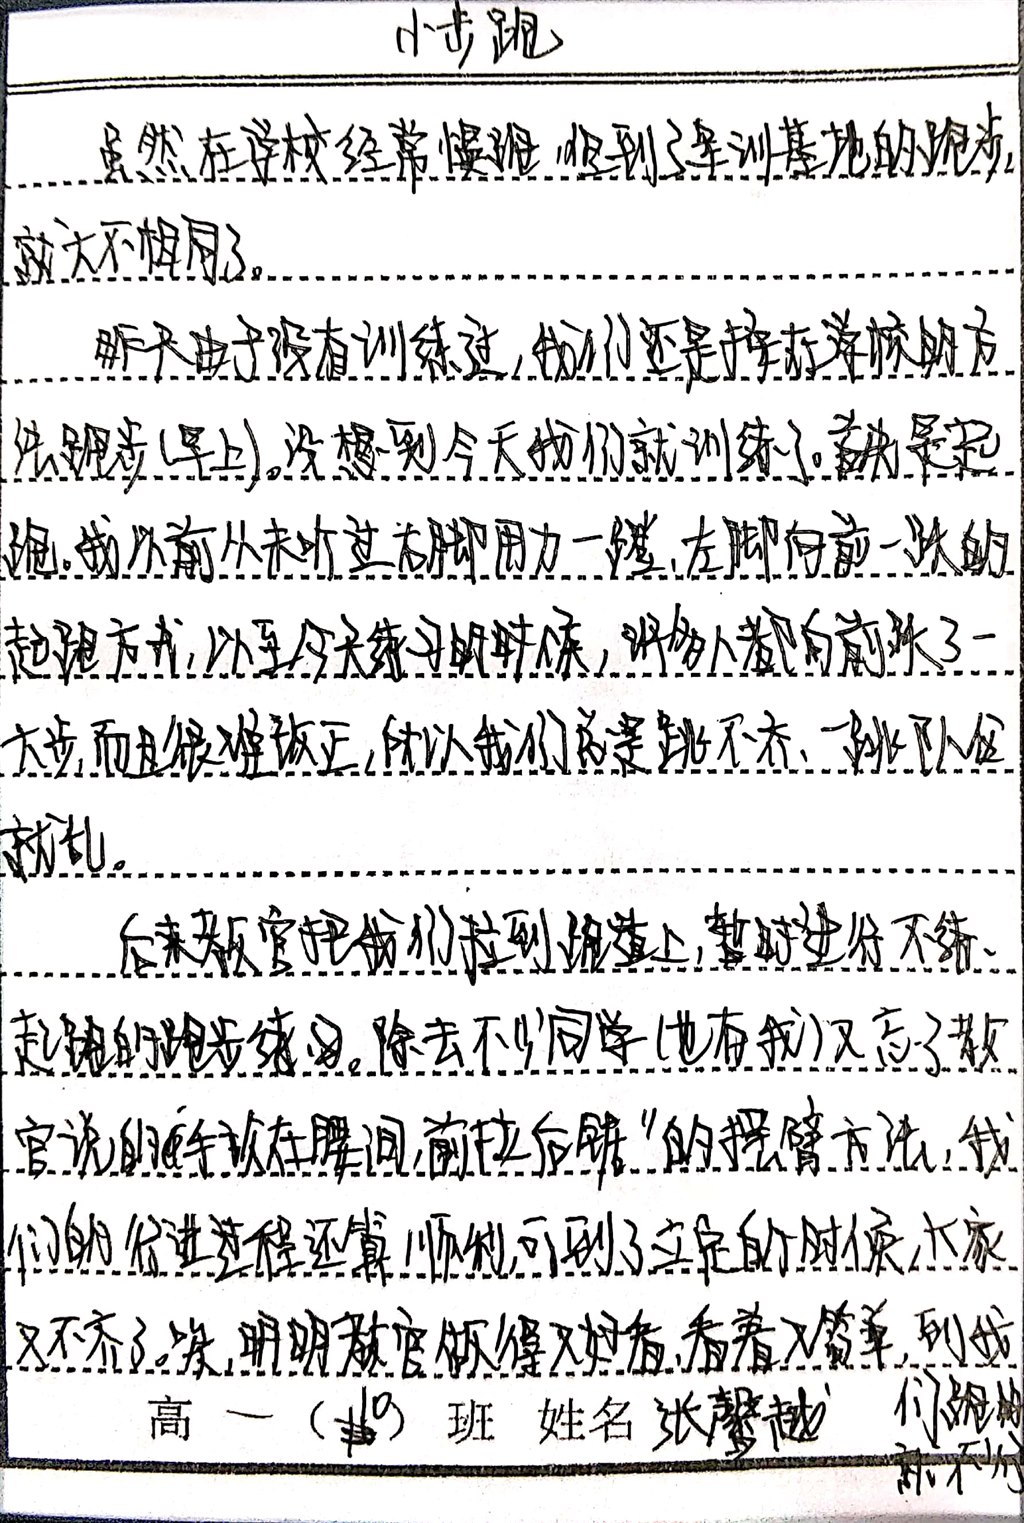 小步跑
虽然在学校经常慢跑，但到了军训基地的跑步，
就大不相同了。
昨天由于没有训练过，我们还是按在学校的方
法跑步(早上)。没想到今天我们就训练了。首先是起
跑。我以前从未听过右脚用力一蹬、左脚向前一跃的
起跑方式，以至今天练习的时候，好多人都向前跃了一
大步，而且很难改正，所以我们总是跳不齐、一跳队伍
就乱。
后来教官把我们拉到跑道上，暂时进行不练、
起跑的跑步练习。除去不少同学(也有我)又忘了教
官说的“手放在腰间，前拉后锯”的摆臂方法，我
们的行进过程还算顺利，可到了立定的时候，大家
又不齐了。唉，明明教官做得又好看，看着又简单，到我
们跑的
就不
高一(10)班 姓名 张馨越